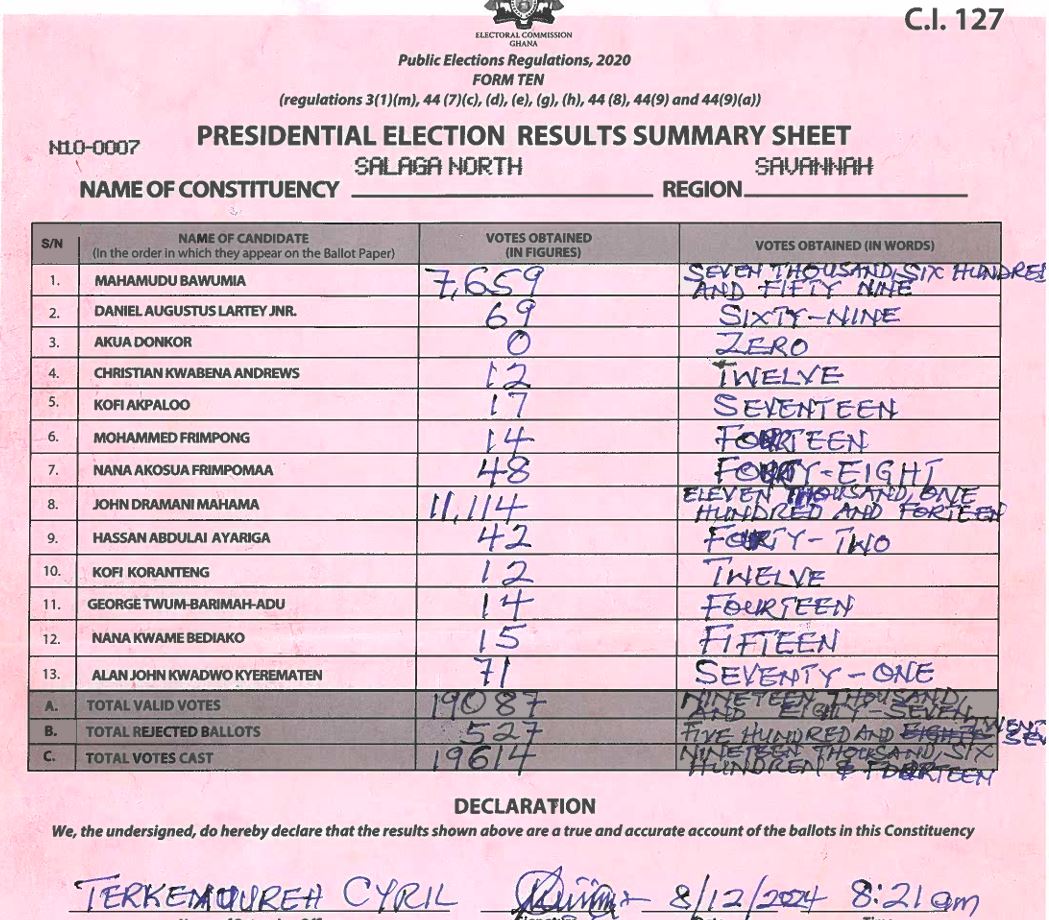 C.I. 127
ELECTORAL COMMISSION
GHANA
Public Elections Regulations, 2020
FORM TEN
(regulations 3(1)(m), 44 (7)(c), (d), (e), (g), (h), 44 (8), 44(9) and 44(9)(a))
N10-0007
PRESIDENTIAL ELECTION RESULTS SUMMARY SHEET
NAME OF CONSTITUENCY SALAGA NORTH REGION SAVANNAH
S/N NAME OF CANDIDATE (In the order in which they appear on the Ballot Paper) VOTES OBTAINED (IN FIGURES) VOTES OBTAINED (IN WORDS)
1. MAHAMUDU BAWUMIA 7,659 SEVEN THOUSAND, SIX HUNDRED AND FIFTY NINE
2. DANIEL AUGUSTUS LARTEY JNR. 69 SIXTY-NINE
3. AKUA DONKOR 0 ZERO
4. CHRISTIAN KWABENA ANDREWS 12 TWELVE
5. KOFI AKPALOO 17 SEVENTEEN
6. MOHAMMED FRIMPONG 14 FOURTEEN
7. NANA AKOSUA FRIMPOMAA 48 FORTY-EIGHT
8. JOHN DRAMANI MAHAMA 11,114 ELEVEN THOUSAND, ONE HUNDRED AND FORTEEN
9. HASSAN ABDULAI AYARIGA 42 FOURTY-TWO
10. KOFI KORANTENG 12 TWELVE
11. GEORGE TWUM-BARIMAH-ADU 14 FOURTEEN
12. NANA KWAME BEDIAKO 15 FIFTEEN
13. ALAN JOHN KWADWO KYEREMATEN 71 SEVENTY-ONE
A. TOTAL VALID VOTES 19087 NINETEEN THOUSAND, AND EIGHTY-SEVEN
B. TOTAL REJECTED BALLOTS 527 FIVE HUNDRED AND EIGHTY- TWENTY SEV
C. TOTAL VOTES CAST 19614 NINETEEN THOUSAND, SIX HUNDREN & FOURTEEN
DECLARATION
We, the undersigned, do hereby declare that the results shown above are a true and accurate account of the ballots in this Constituency
CYRIL 8/12/2024 8:21am